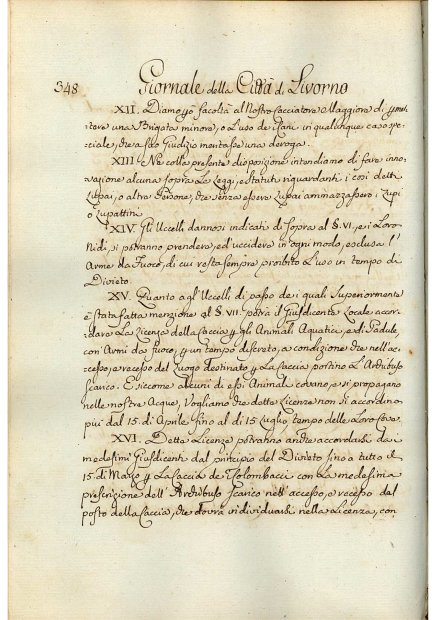 348 Giornale della Città di Livorno
XII. Diamo però facoltà al Nostro Cacciatore Maggiore di permet-
tere una Brigata minore, o l'uso de Cani in qualunque caso spe-
ciale, che a suo Giudizio meritasse una deroga.
XIII. Ne colla presente disposizione intendiamo di fare inno-
vazione alcuna sopra le Leggi, e Statuti riguardanti i così detti
Lupai, o altre Persone, che senza essere Lupai ammazzassero i Lupi
o Lupattini.
XIV. Gli Uccelli dannosi indicati di sopra al §. VI, e i Loro
Nidi, si potranno prendere, ed uccidere in ogni modo, esclusa l'
Arme da Fuoco, di cui resta sempre proibito l'uso in tempo di
Divieto.
XV. Quanto agl'Uccelli di passo de i quali superiormente
è stata fatta menzione al §. VII. potrà il Giusdicente Locale accor-
dare la Licenza della Caccia per gli Animali Aquatici, e di Padule,
con Armi da fuoco, per un tempo discreto, a condizione che nell'ac-
cesso, e recesso del Luogo destinato per la Caccia portino l'Archibuso
scarico. E siccome alcuni di essi Animali covano, e si propagano
nelle nostre Acque, Vogliamo che dette Licenze non si accordino
più dal 15. di Aprile fino al dì 15. Luglio, tempo delle Loro Cove.
XVI. Dette Licenze potranno anche accordarsi da i
medesimi Giusdicenti dal principio del Divieto fino a tutto il
15. di Marzo per la Caccia de Colombacci con la medesima
prescrizione dell'Archibuso scarico nell'accesso, e recesso dal
posto della Caccia, che dovrà individuarsi nella Licenza, con